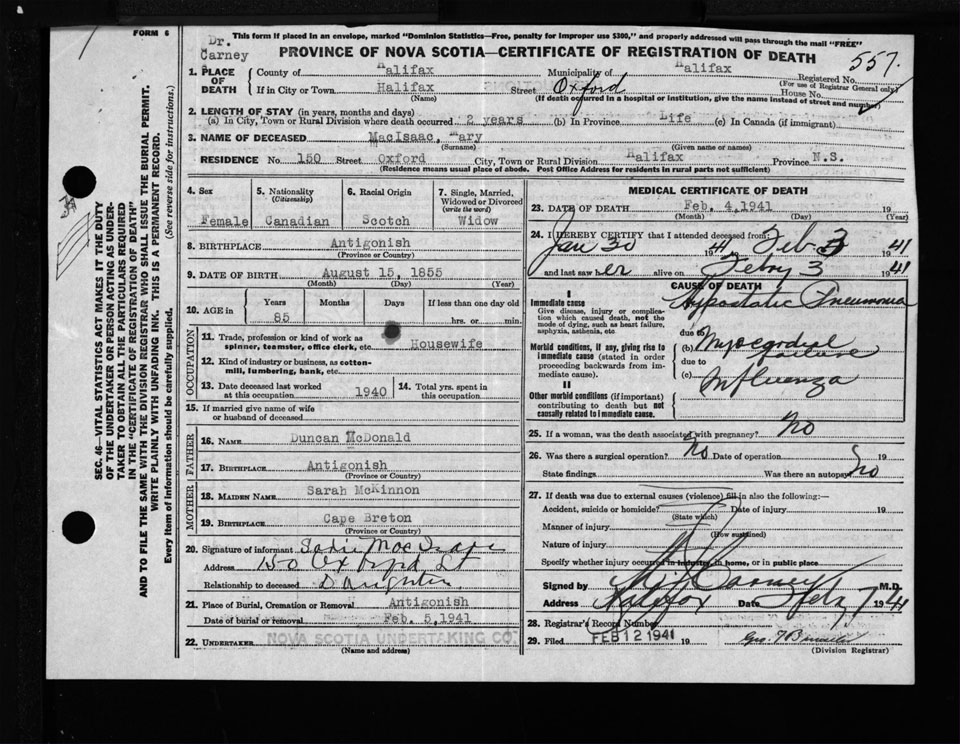 FORM 6
This form if placed in an envelope, marked "Dominion Statistics—Free, penalty for improper use $300," and properly addressed will pass through the mail "FREE"
Dr. Carney
PROVINCE OF NOVA SCOTIA—CERTIFICATE OF REGISTRATION OF DEATH
557.
1. PLACE OF DEATH
County of Halifax Municipality of Halifax Registered No.
(For use of Registrar General only)
If in City or Town Halifax Street Oxford House No.
(Name) (If death occurred in a hospital or institution, give the name instead of street and number)
2. LENGTH OF STAY (in years, months and days)
(a) In City, Town or Rural Division where death occurred 2 years (b) In Province Life (c) In Canada (if immigrant)
3. NAME OF DECEASED MacIsaac, Mary
(Surname) (Given name or names)
RESIDENCE No. 150 Street Oxford City, Town or Rural Division Halifax Province N.S.
(Residence means usual place of abode. Post Office Address for residents in rural parts not sufficient)
4. Sex Female
5. Nationality (Citizenship) Canadian
6. Racial Origin Scotch
7. Single, Married, Widowed or Divorced (write the word) Widow
8. BIRTHPLACE Antigonish
(Province or Country)
9. DATE OF BIRTH August 15, 1855
(Month) (Day) (Year)
10. AGE in Years 85 Months Days If less than one day old hrs. or min.
OCCUPATION
11. Trade, profession or kind of work as spinner, teamster, office clerk, etc. Housewife
12. Kind of industry or business, as cotton-mill, lumbering, bank, etc.
13. Date deceased last worked at this occupation 1940
14. Total yrs. spent in this occupation
15. If married give name of wife or husband of deceased
FATHER
16. NAME Duncan McDonald
17. BIRTHPLACE Antigonish
(Province or Country)
MOTHER
18. MAIDEN NAME Sarah McKinnon
19. BIRTHPLACE Cape Breton
(Province or Country)
20. Signature of informant Sadie MacIsaac
Address 150 Oxford St
Relationship to deceased Daughter
21. Place of Burial, Cremation or Removal Antigonish
Date of burial or removal Feb. 5, 1941
22. UNDERTAKER NOVA SCOTIA UNDERTAKING CO.
(Name and address)
MEDICAL CERTIFICATE OF DEATH
23. DATE OF DEATH Feb. 4, 1941 19
(Month) (Day) (Year)
24. I HEREBY CERTIFY that I attended deceased from
Jan 30 1941 Feb 3 1941
and last saw her alive on Febry 3 1941
CAUSE OF DEATH
I
Immediate cause
Give disease, injury or complication which caused death, not the mode of dying, such as heart failure, asphyxia, asthenia, etc
Hypostatic Pneumonia
due to
Morbid conditions, if any, giving rise to immediate cause (stated in order proceeding backwards from immediate cause).
(b) Myocardial Failure
due to
(c) Influenza
II
Other morbid conditions (if important) contributing to death but not causally related to immediate cause.
25. If a woman, was the death associated with pregnancy? No
26. Was there a surgical operation? No Date of operation 19
State findings Was there an autopsy No
27. If death was due to external causes (violence) fill in also the following:—
Accident, suicide or homicide? Date of injury 19
(State which)
Manner of injury
(How sustained)
Nature of injury
Specify whether injury occurred in industry, in home, or in public place
Signed by Carney M.D.
Address Halifax Date Feb 7 1941
28. Registrar's Record Number
29. Filed FEB 12 1941 19
(Division Registrar)
SEC. 46—VITAL STATISTICS ACT MAKES IT THE DUTY
OF THE UNDERTAKER OR PERSON ACTING AS UNDER-
TAKER TO OBTAIN ALL THE PARTICULARS REQUIRED
IN THE "CERTIFICATE OF REGISTRATION OF DEATH"
AND TO FILE THE SAME WITH THE DIVISION REGISTRAR WHO SHALL ISSUE THE BURIAL PERMIT.
WRITE PLAINLY WITH UNFADING INK. THIS IS A PERMANENT RECORD.
Every item of information should be carefully supplied. (See reverse side for instructions.)